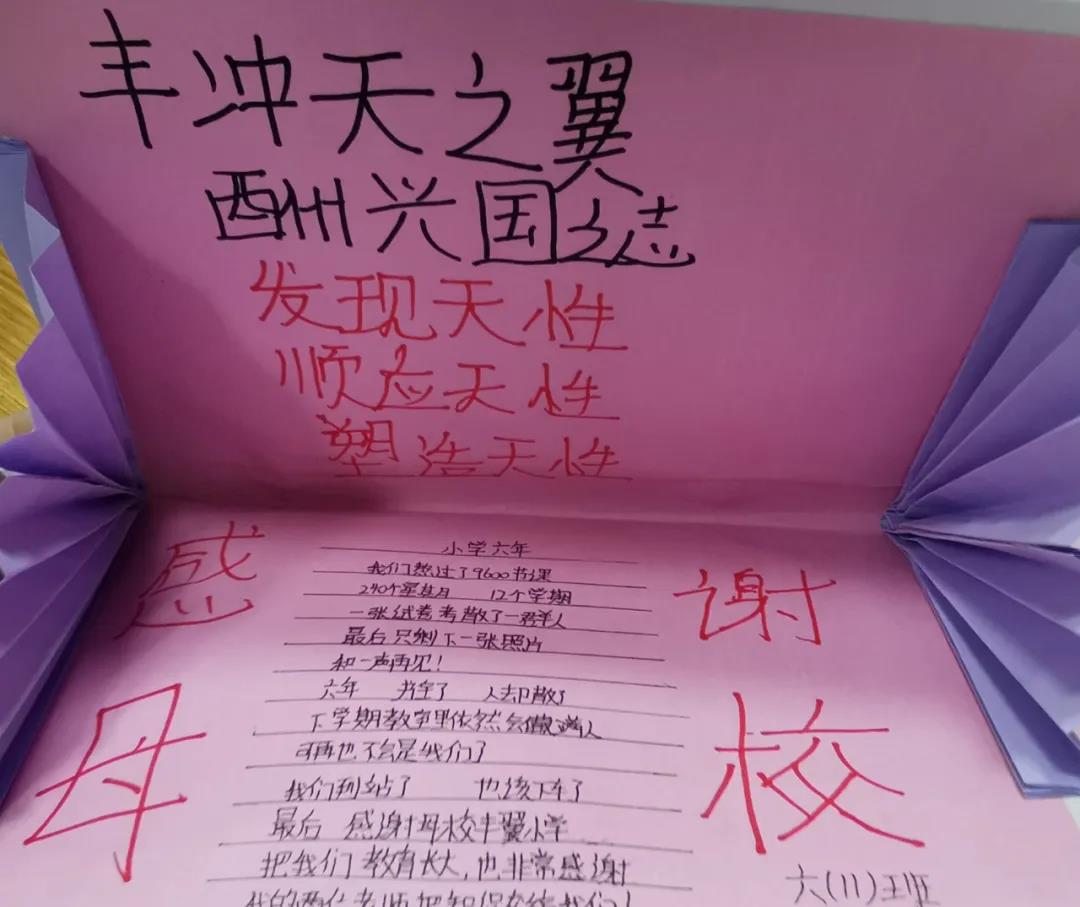 丰冲天之翼
酬兴国之志
发现天性
顺应天性
塑造天性
感谢
母校
小学六年
我们熬过了9600节课
240个星期 12个学期
一张试卷考散了一群人
最后只剩下一张照片
和一声再见!
六年 书全了 人却散了
下学期教室里依然会做满人
可再也不会是我们了
我们到站了 也该下车了
最后 感谢母校丰翼小学
把我们教育长大,也非常感谢
我的两位老师把知识交给我们!
六(11)班